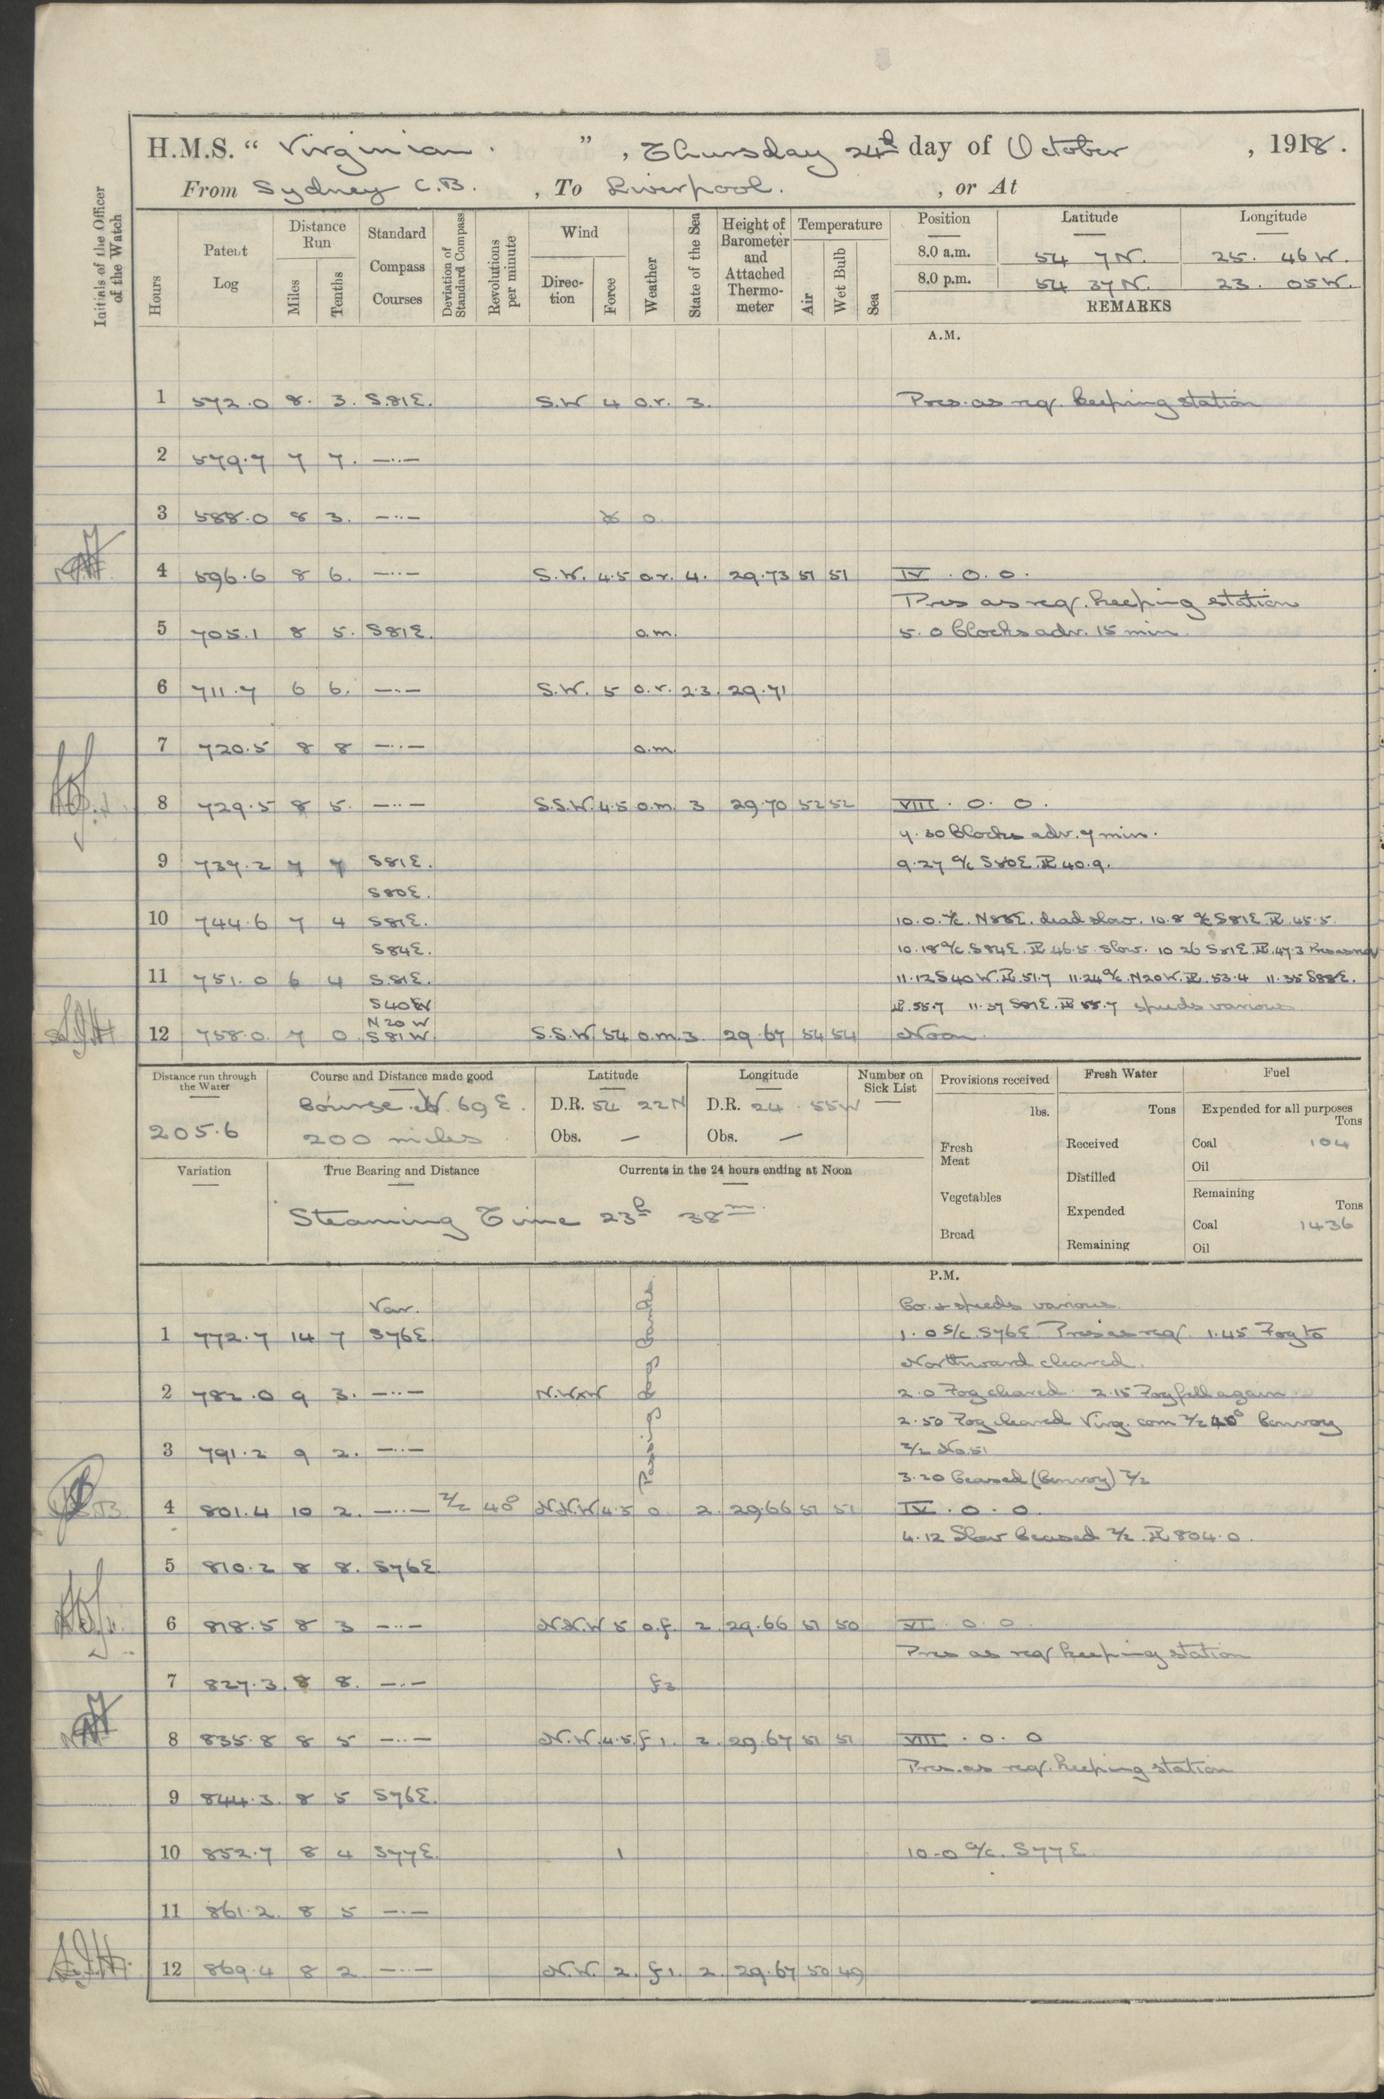 H.M.S. “ Virginian. ” , Thursday 24th day of October , 1918.
From Sydney C.B. , To Liverpool. , or At
Initials of the Officer of the Watch
Hours
Patent Log
Distance Run
Miles
Tenths
Standard Compass Courses
Deviation of Standard Compass
Revolutions per minute
Wind
Direction
Force
Weather
State of the Sea
Height of Barometer and Attached Thermometer
Temperature
Air
Wet Bulb
Sea
Position Latitude Longitude
8.0 a.m. 54 7 N. 25. 46 W.
8.0 p.m. 54 37 N. 23. 05 W.
REMARKS
A.M.
1 572.0 8. 3. S.81E. S.W 4 o.r. 3. Pres. as req. keeping station
2 579.7 7 7. —··—
3 588.0 8 3. —··— o
4 596.6 8 6. —··— S.W. 4.5 o.r. 4. 29.73 51 51 IV . 0. 0.
Pres as req. keeping station
5 705.1 8 5. S81E. o.m. 5.0 Clocks adv. 15 min.
6 711.7 6 6. —··— S.W. 5 o.r. 2.3. 29.71
7 720.5 8 8 —··— o.m.
8 729.5 8 5. —··— S.S.W. 4.5 o.m. 3 29.70 52 52 VIII . 0. 0.
7.30 Clocks adv. 7 min.
9 737.2 7 7 S81E. 9.27 a/c S80E. PL 40.9.
S80E.
10 744.6 7 4 S81E. 10.0. a/c. N88E. dead slow. 10.8 a/c S81E PL 45.5
S84E. 10.18 a/c S84E. PL 46.5 Slow. 10 26 S81E. PL 47.3 Pres as req
11 751.0 6 4 S.81E. 11.12 S40W. PL 51.7 11.24 a/c. N20W. PL. 53.4 11.35 S88E.
S40W PL 55.7 11.37 S81E. PL 55.7 speeds various
N20W
12 758.0 7 0 S81W. S.S.W 54 o.m. 3. 29.67 54 54 Noon
Distance run through the Water
205.6
Course and Distance made good
Course N. 69 E.
200 miles
Latitude
D.R. 54 22N
Obs. —
Longitude
D.R. 24. 55W
Obs. —
Number on Sick List
—
Provisions received
lbs.
Fresh Meat
Vegetables
Bread
Fresh Water
Tons
Received
Distilled
Expended
Remaining
Fuel
Expended for all purposes
Tons
Coal 104
Oil
Remaining
Tons
Coal 1436
Oil
Variation
True Bearing and Distance
Currents in the 24 hours ending at Noon
Steaming Time 23h 38m.
P.M.
Var. Co. & speeds various
1 772.7 14 7 S76E. 1.0 S/c. S76E Pres as req. 1.45 Fog to
Northward cleared.
Passing Fog Banks.
2 782.0 9 3. —··— N.WxW 2.0 Fog cleared 2.15 Fog fell again
2.50 Fog cleared Virg. com Z/z 40° Convoy
3 791.2 9 2. —··— Z/z No. 51
3.20 Ceased (Convoy) Z/z
4 801.4 10 2. —··— Z/z 40° N.N.W 4.5 o. 2. 29.66 51 51 IV . 0. 0.
4.12 Slow Ceased Z/z. PL 804.0.
5 810.2 8 8. S76E.
6 818.5 8 3 —··— N.N.W 5 o.f. 2 29.66 51 50 VI . 0 0
Pres as req keeping station
7 827.3. 8 8. —··— f3
8 835.8 8 5 —··— N.W. 4.5. f1. 2. 29.67 51 51 VIII . 0. 0
Pres. as req. keeping station
9 844.3. 8 5 S76E.
10 852.7 8 4 S77E. 1 10.0 a/c. S77E
11 861.2. 8 5 —··—
12 869.4 8 2 —··— N.W. 2. f1. 2. 29.67 50 49